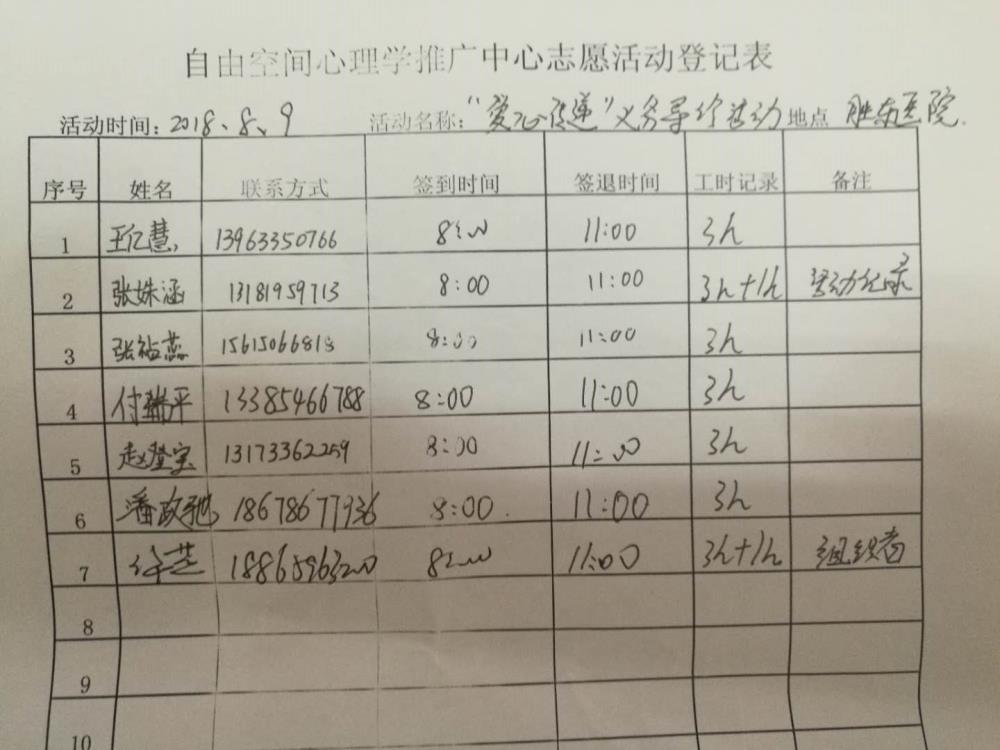 自由空间心理学推广中心志愿活动登记表
活动时间：2018、8、9 活动名称："爱心传递"义务导诊活动 地点 胜东医院.
序号 姓名 联系方式 签到时间 签退时间 工时记录 备注
1 王亿慧 13963350766 8:00 11:00 3h
2 张姝涵 13181959713 8:00 11:00 3h+1h 活动记录
3 张 15615066818 8:00 11:00 3h
4 付瑞平 13385466788 8:00 11:00 3h
5 赵登实 13173362259 8:00 11:00 3h
6 潘政驰 18678677936 8:00. 11:00 3h
7 18865963200 8:00 11:00 3h+1h 组织者
8
9
10